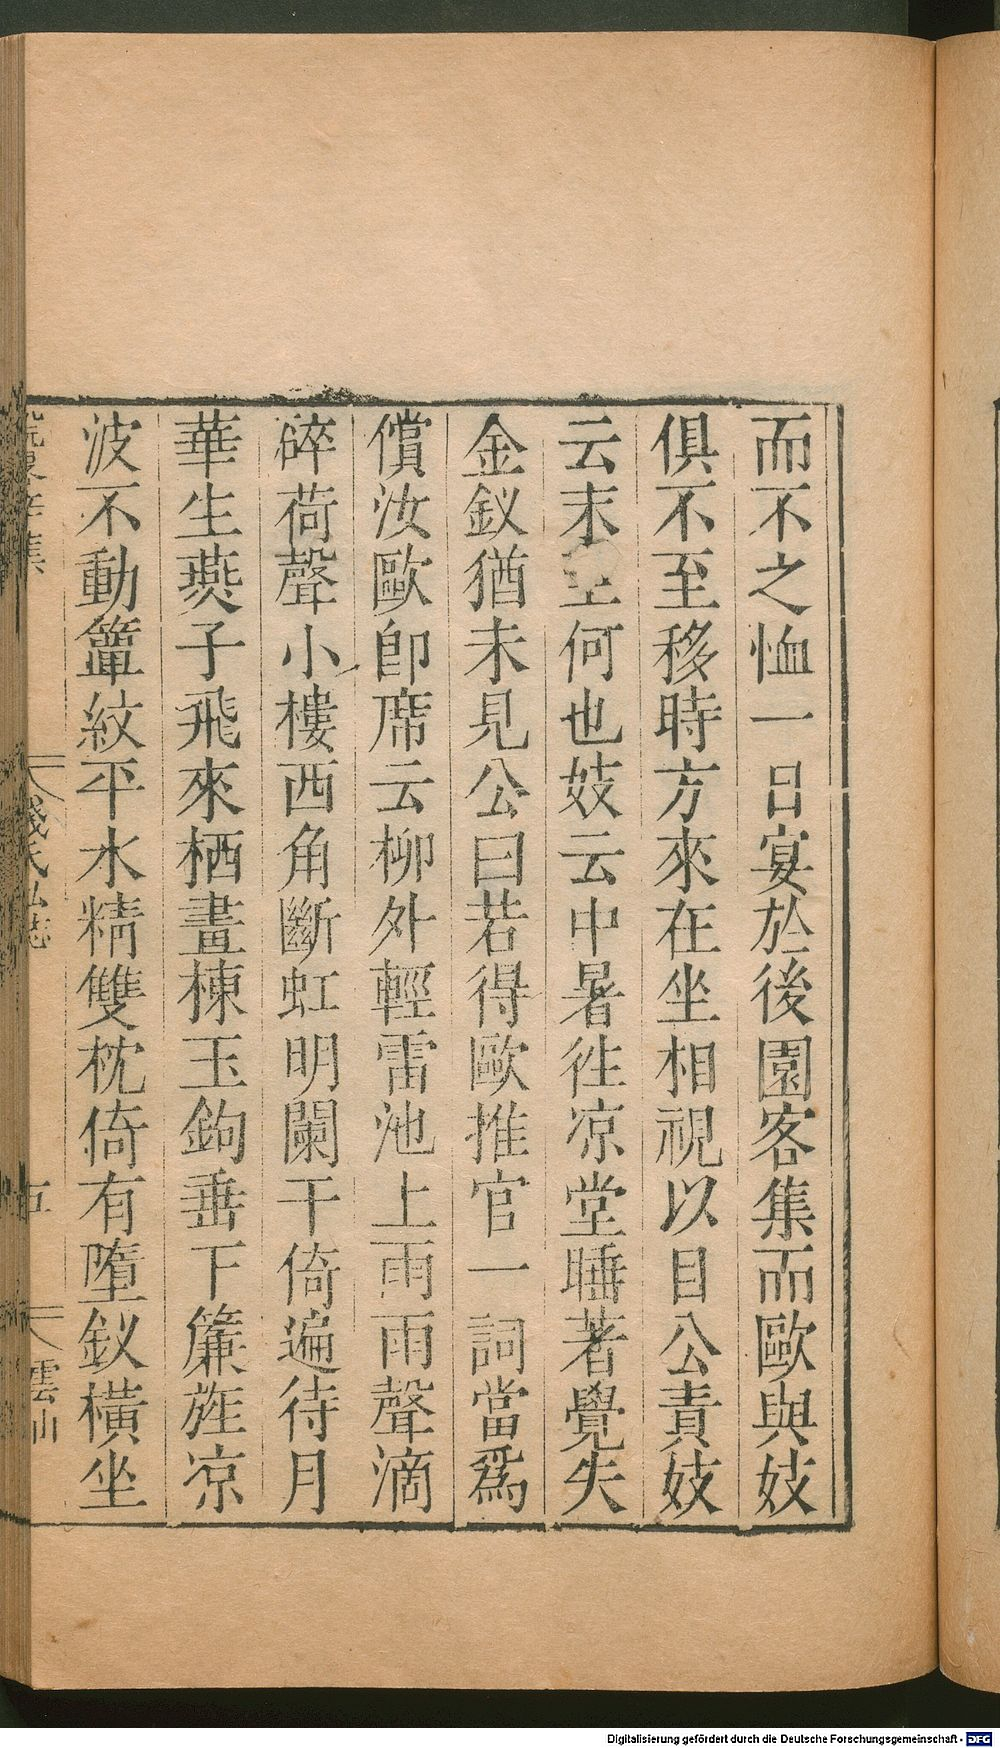 而不之恤一日宴於後園客集而歐與妓
俱不至移時方來在坐相視以目公責妓
云末至何也妓云中暑徃凉堂睡著覺失
金釵猶未見公曰若得歐推官一詞當爲
償汝歐卽席云柳外輕雷池上雨雨聲滴
碎荷聲小樓西角斷虹明闌干倚遍待月
華生燕子飛來栖畫棟玉鉤垂下簾旌凉
波不動簟紋平水精雙枕倚有墮釵橫坐
錢氏私誌
五
雲山
Digitalisierung gefördert durch die Deutsche Forschungsgemeinschaft - DFG